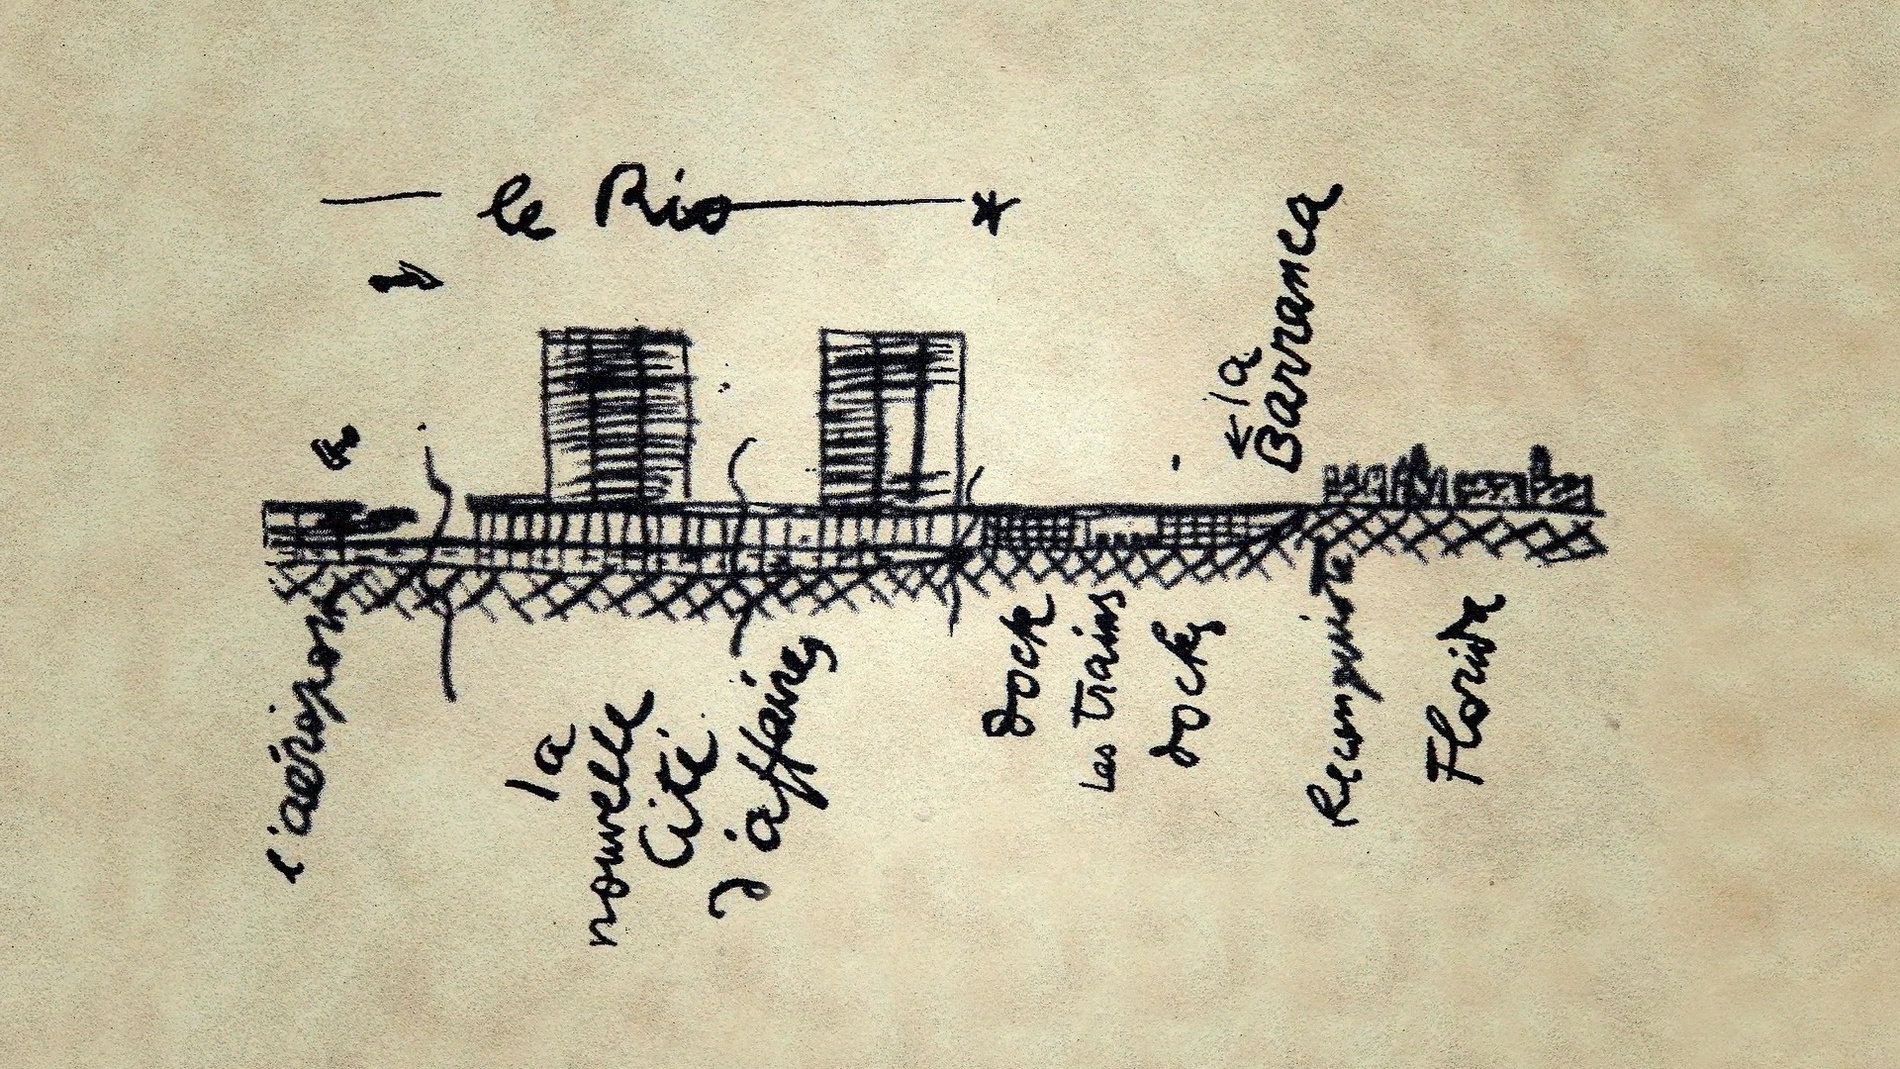 le Rio
← la
Barranca
l'aéroport
la
nouvelle
Cité
d'affaires
dock
les trains
docks
Reconquista
Florida